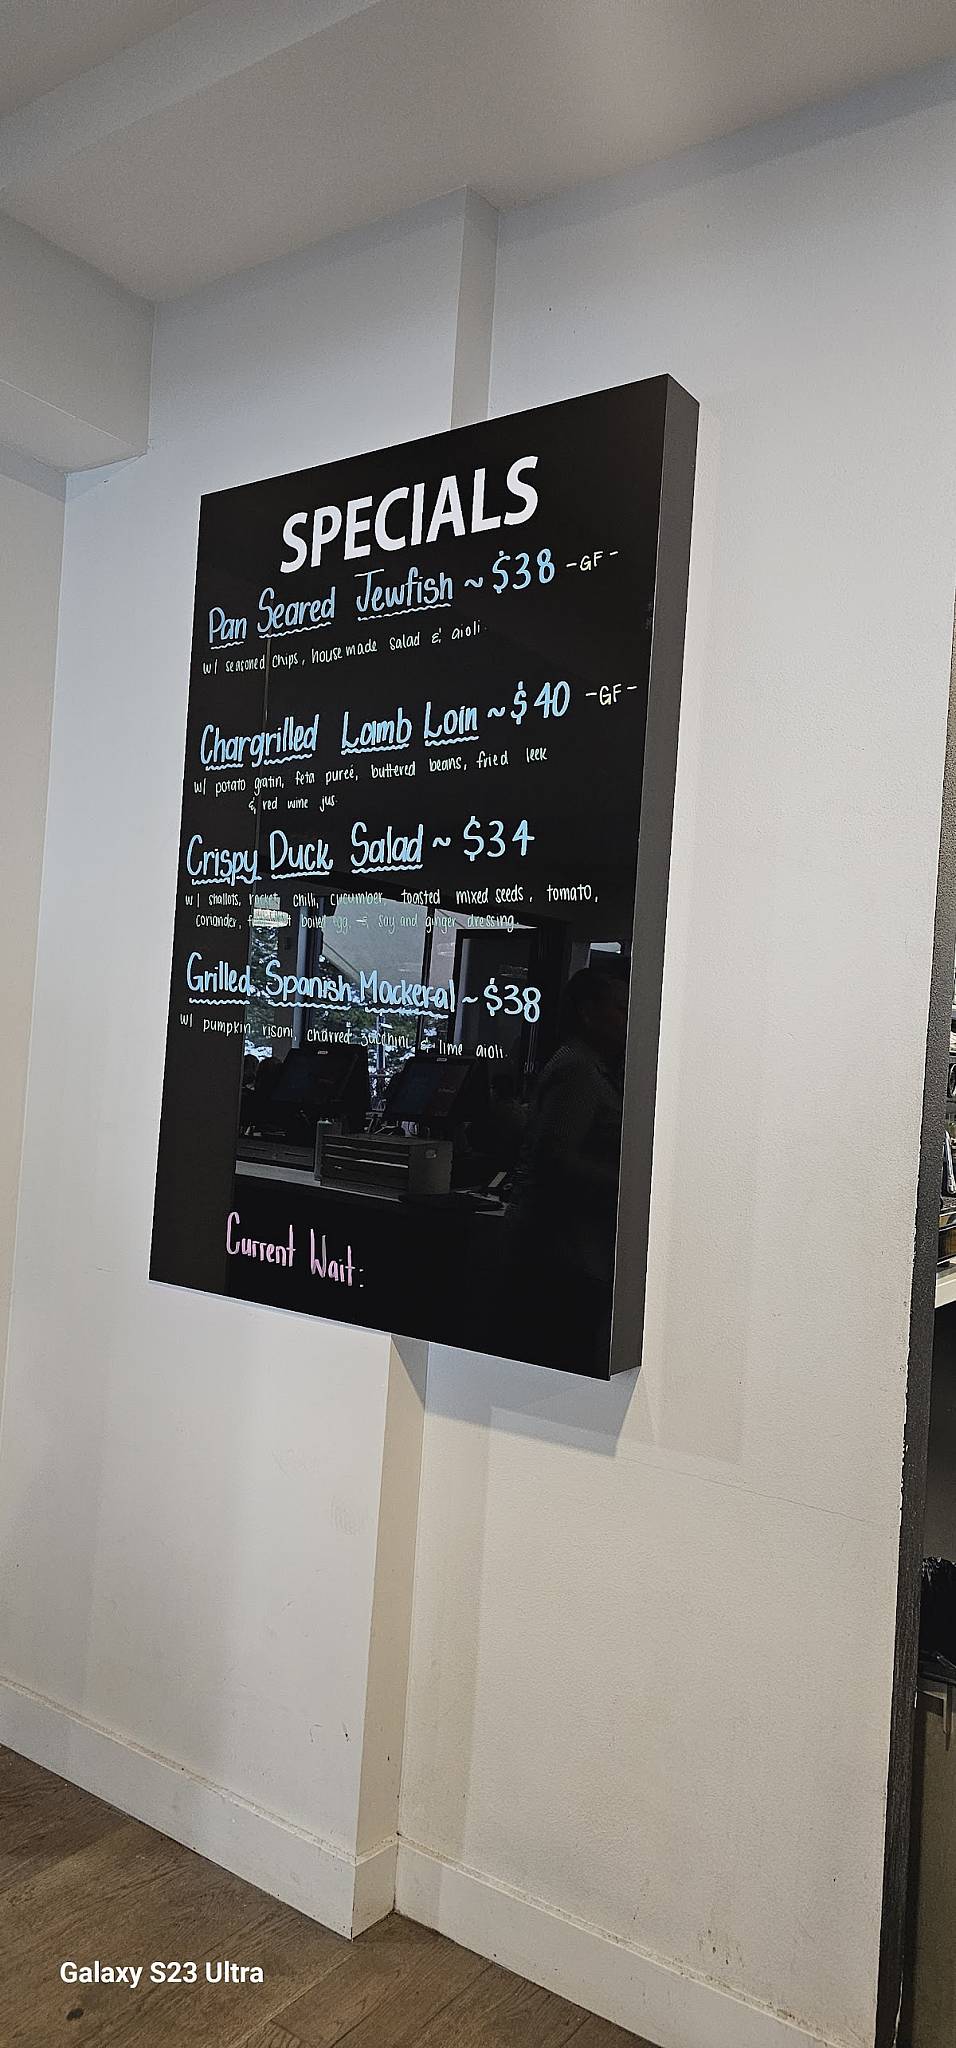 SPECIALS
Pan Seared Jewfish ~ $38 -GF-
w/ seasoned chips, house made salad & aioli.
Chargrilled Lamb Loin ~ $40 -GF-
w/ potato gratin, feta pureé, buttered beans, fried leek
& red wine jus.
Crispy Duck Salad ~ $34
w/ shallots, rocket, chilli, cucumber, toasted mixed seeds, tomato,
coriander, boiled egg, & soy and ginger dressing.
Grilled Spanish Mackeral ~ $38
w/ pumpkin risoni, charred zucchini & lime aioli.
Current Wait:
Galaxy S23 Ultra